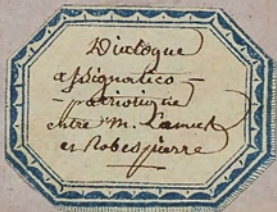 Dialogue
assignatico-
-patriotique
entre m. Lamech
et Robespierre